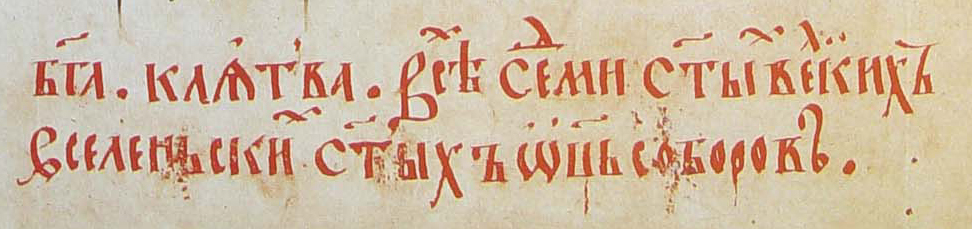 бг҃а. клѧтва. всѣⷯ сеⷣми ст҃ыⷯ веⷧкихъ
вселеньскиⷯ ст҃ыхъ ѿц҃ь соборовъ.